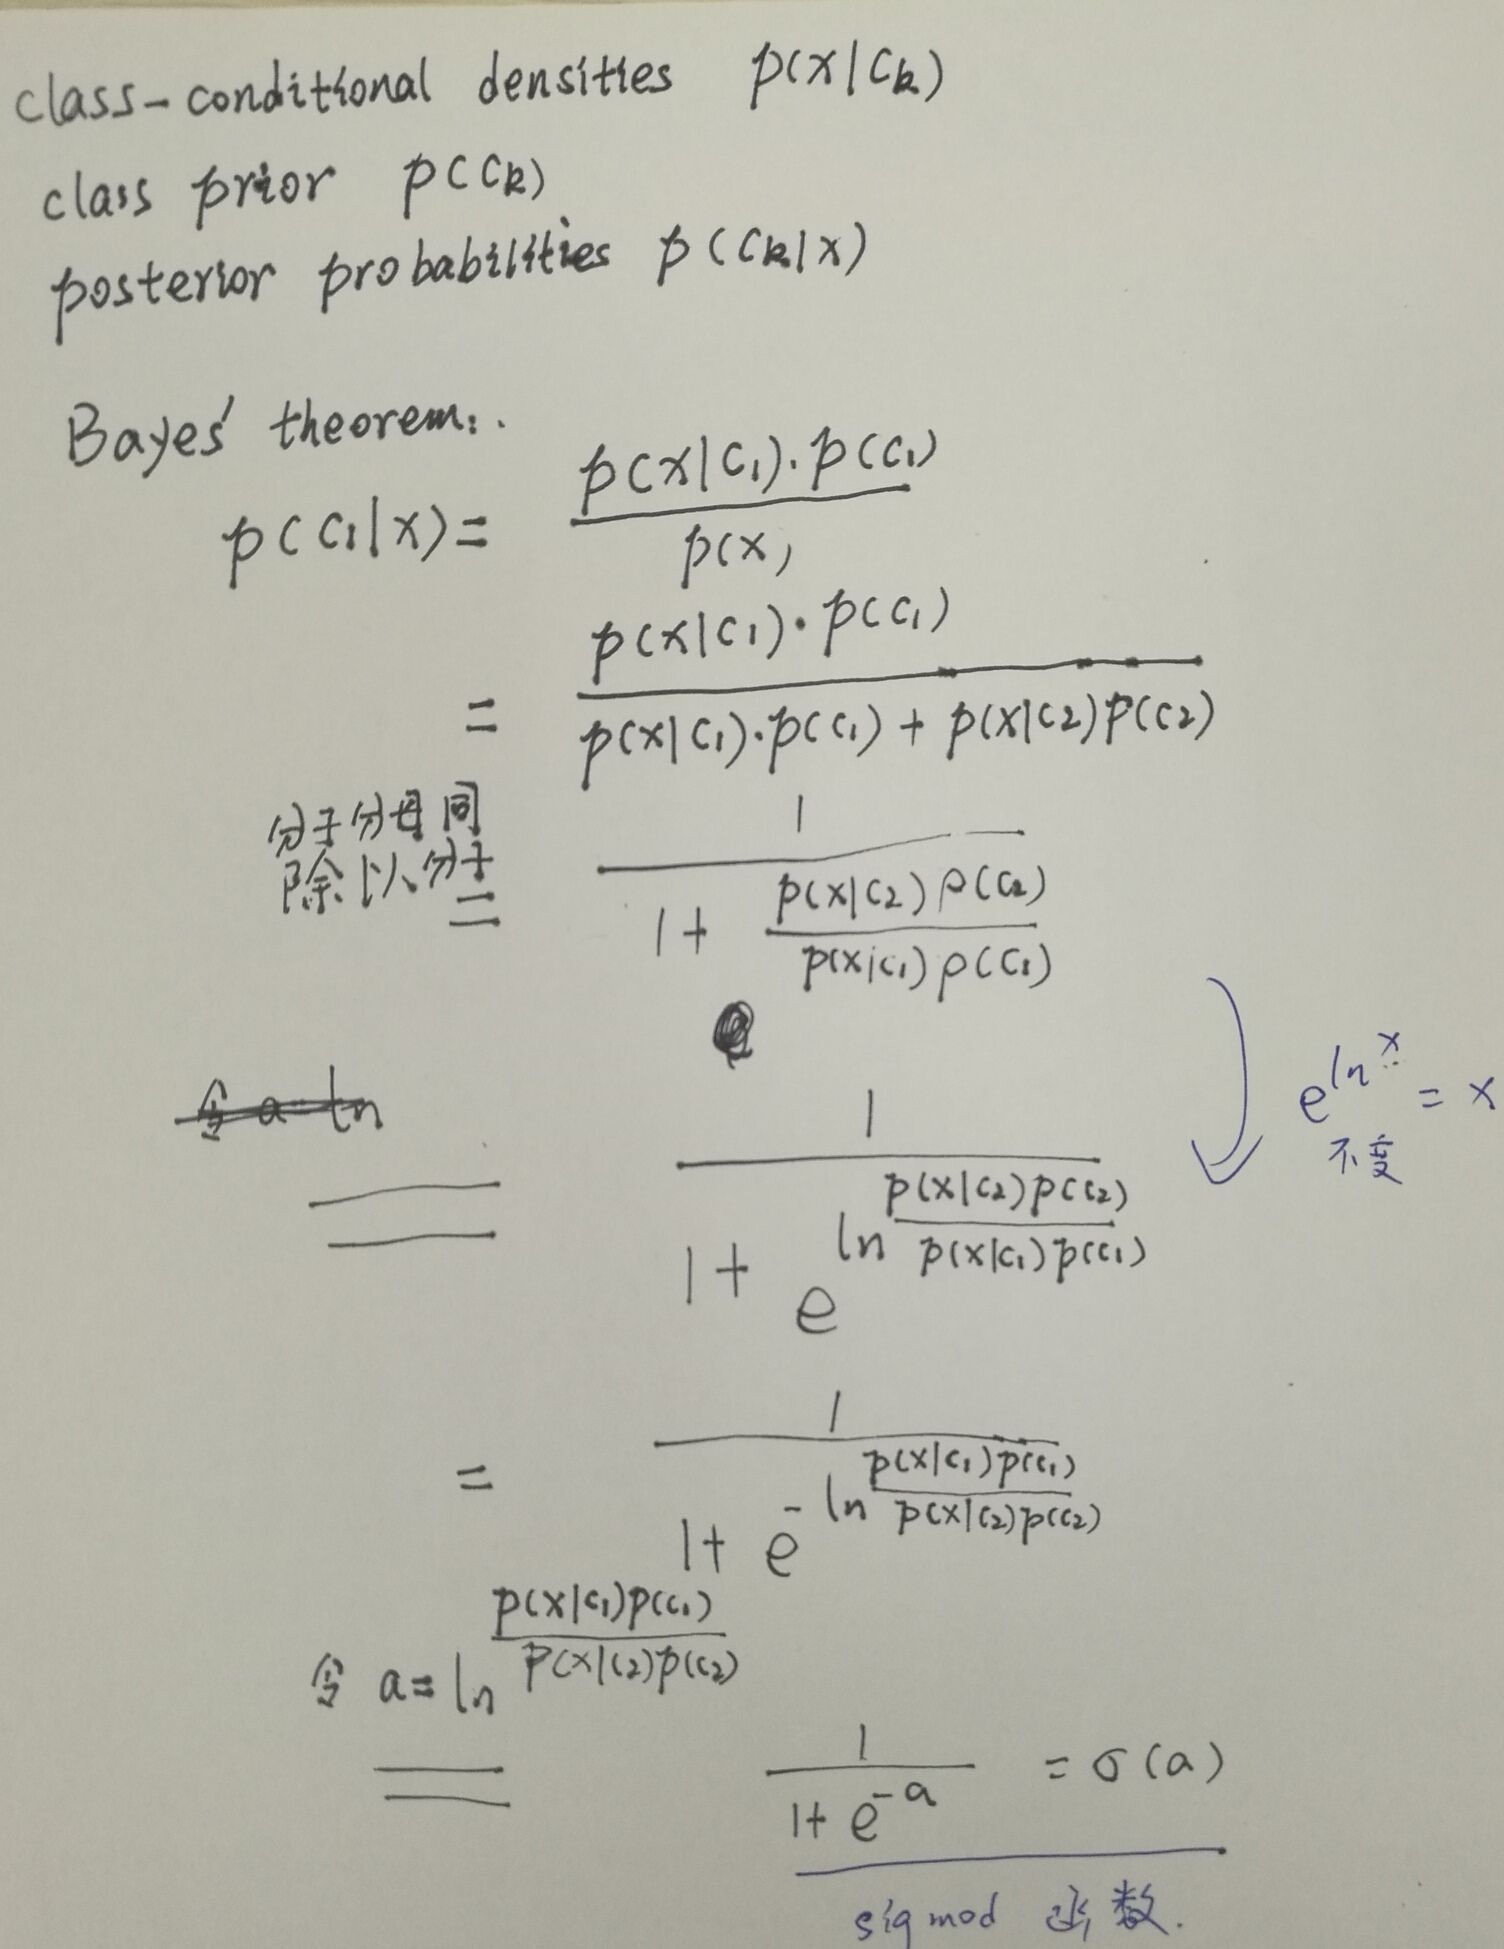 class-conditional densities p(x|Ck)
class prior p(Ck)
posterior probabilities p(Ck|x)
Bayes' theorem:.
p(C1|x) = p(x|C1)·p(C1) / p(x)
= p(x|C1)·p(C1) / p(x|C1)·p(C1) + p(x|C2)p(C2)
分子分母同
除以分子
= 1 / 1 + p(x|C2)p(C2) / p(x|C1)p(C1)
e^ln x = x
不变
令 a = ln
= 1 / 1 + e^ln p(x|C2)p(C2) / p(x|C1)p(C1)
= 1 / 1 + e^-ln p(x|C1)p(C1) / p(x|C2)p(C2)
令 a = ln p(x|C1)p(C1) / p(x|C2)p(C2)
= 1 / 1 + e^-a = σ(a)
sigmod 函数.